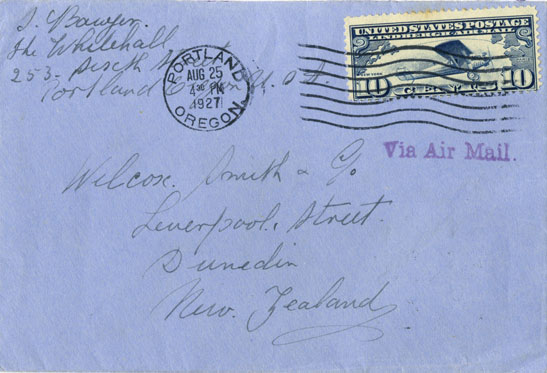 The Whitehall
253. Sixth St
Portland Oregon U.S.A.
PORTLAND
AUG 25
4 30 PM
1927
OREGON.
UNITED STATES POSTAGE
LINDBERGH AIR MAIL
NEW YORK
10 CENTS 10
Via Air Mail.
Welcox. Smith & Co
Leverpool. Street.
Dunedin
New. Zealand